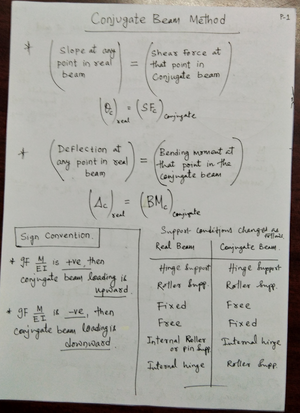 P-1
Conjugate Beam Method
* (Slope at any point in real beam) = (Shear Force at that point in Conjugate beam)
(θc)real = (SFc)conjugate
* (Deflection at any point in real beam) = (Bending moment at that point in the Conjugate beam)
(Δc)real = (BMc)conjugate
Sign Convention
* If M/EI is +ve, then
conjugate beam loading is
upward
* If M/EI is -ve, then
conjugate beam loading is
downward
Support conditions changed as
follows
Real Beam Conjugate Beam
Hinge Support Hinge Support
Roller Supp. Roller Supp.
Fixed Free
Free Fixed
Internal Roller or pin Supp. Internal hinge
Internal hinge Roller Supp.